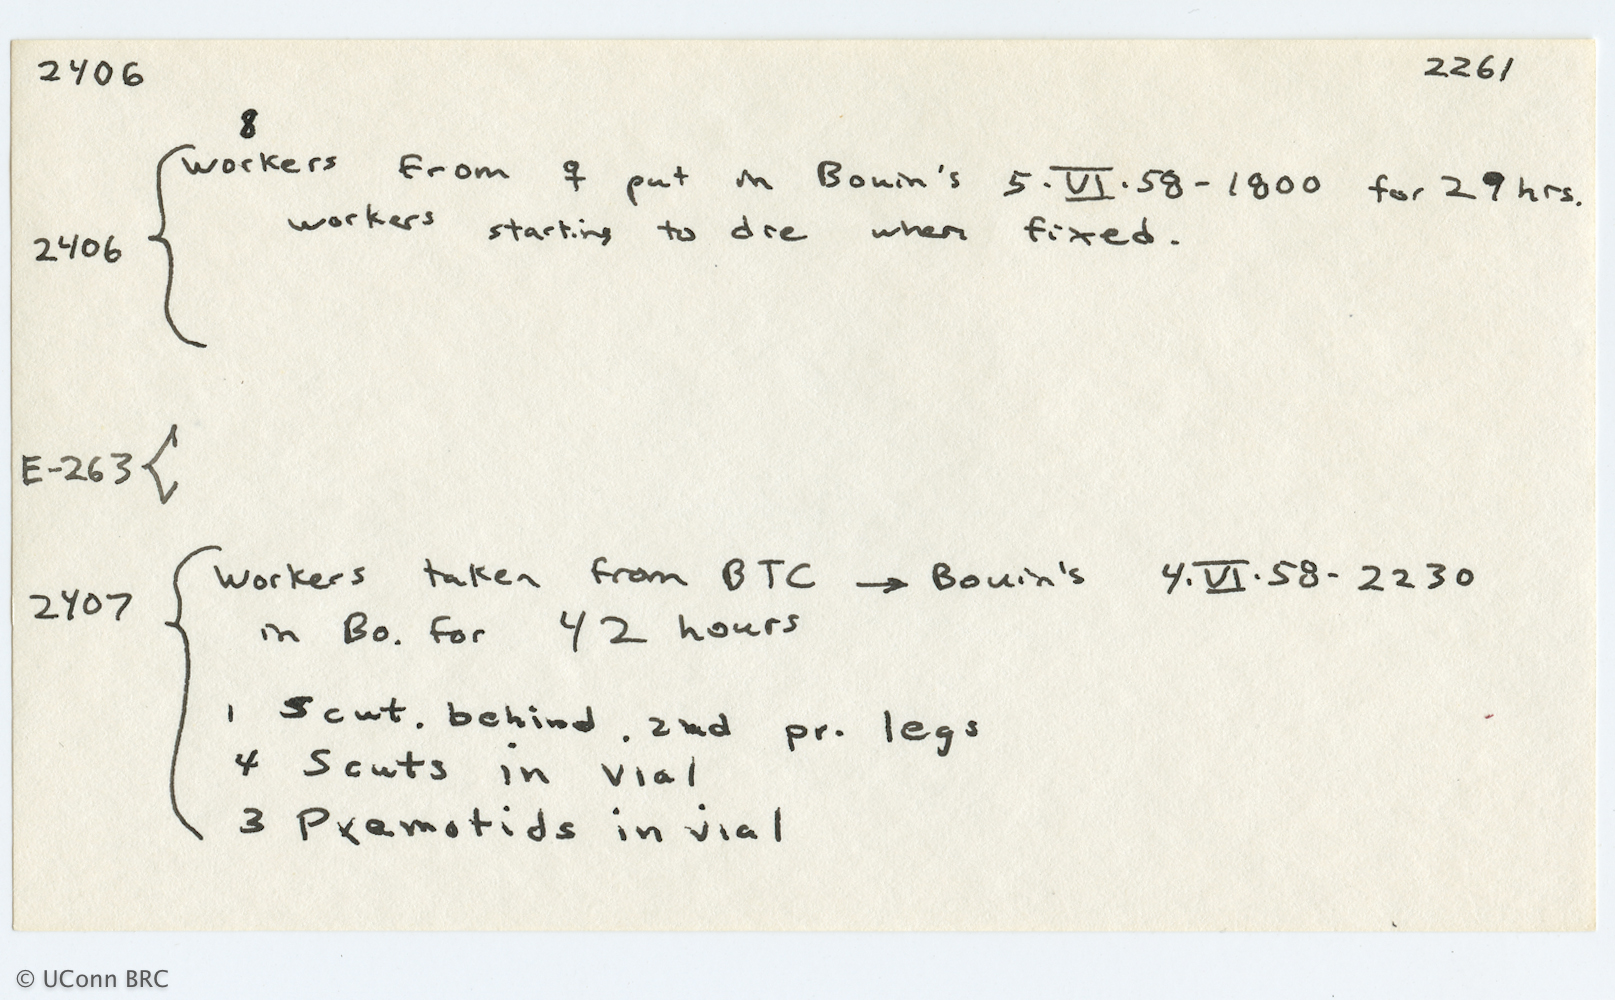 2406 2261
8
workers from ♀ put in Bouin's 5·VI·58-1800 for 29 hrs.
2406 workers starting to die when fixed.
E-263
workers taken from BTC → Bouin's 4·VI·58-2230
2407 in Bo. for 42 hours
1 Scut. behind. 2nd pr. legs
4 Scuts in vial
3 Pyemotids in vial
© UConn BRC